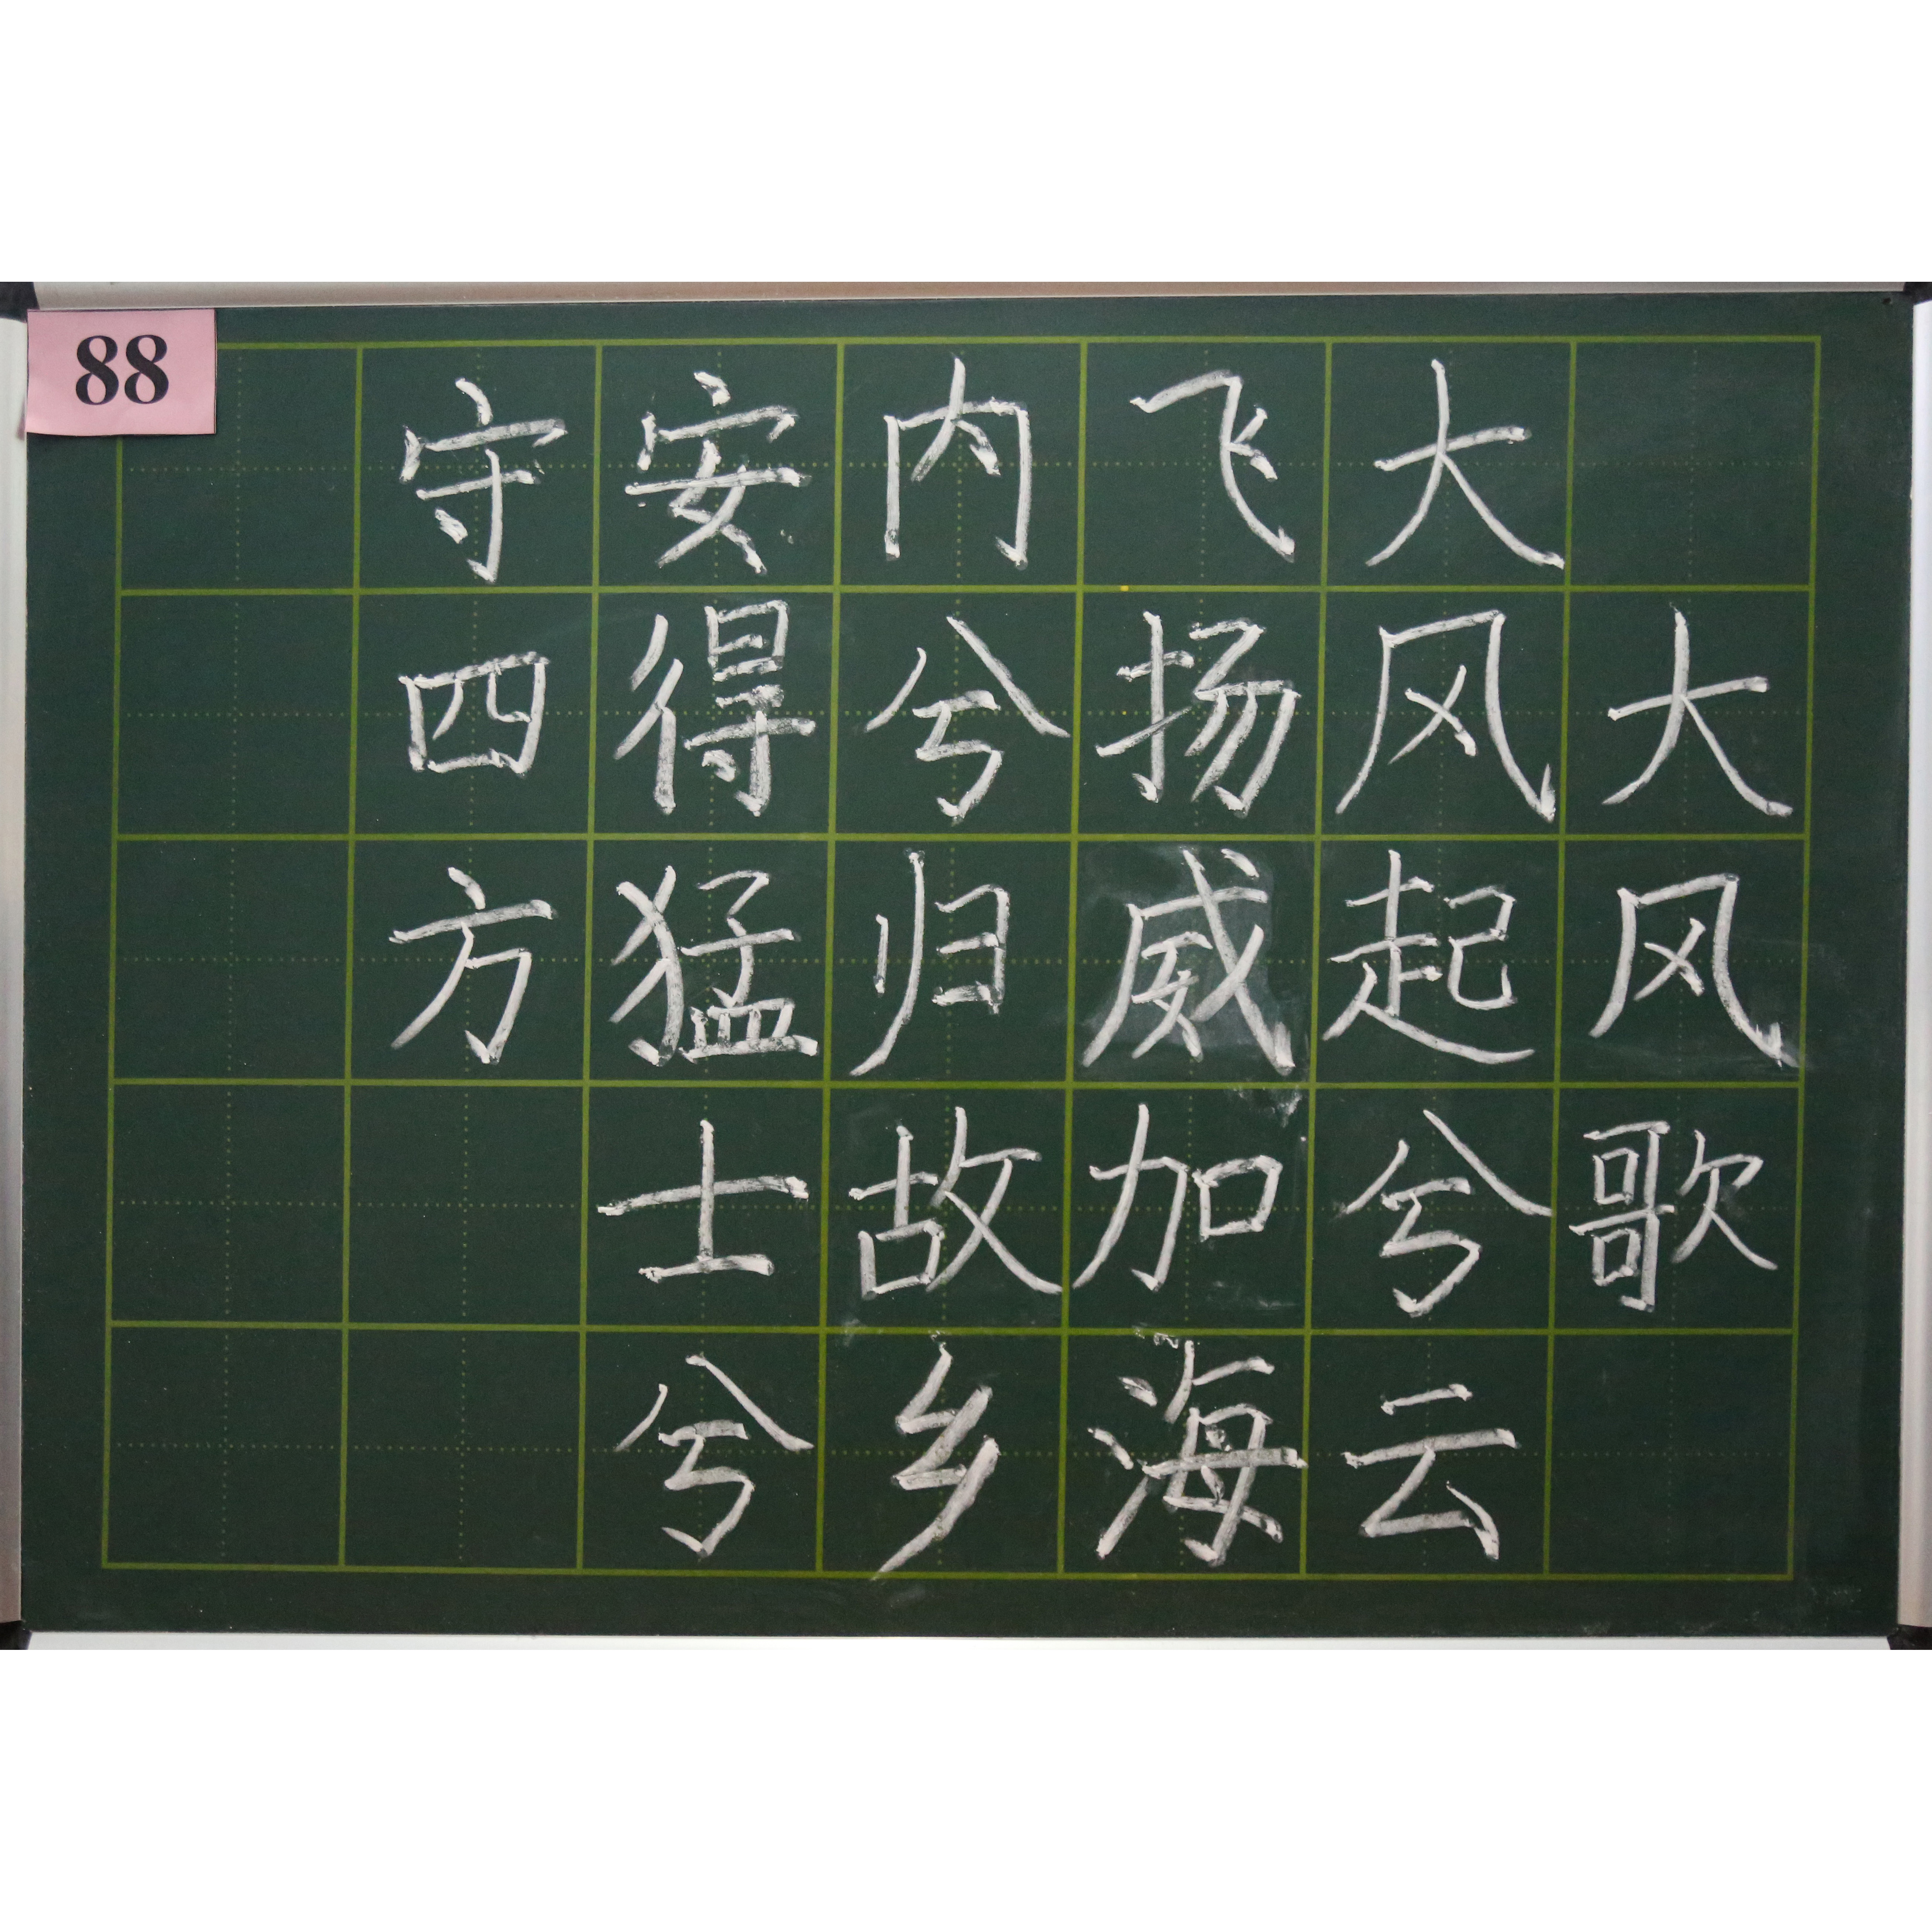 88
大风歌
大风起兮云
飞扬威加海
内兮归故乡
安得猛士兮
守四方